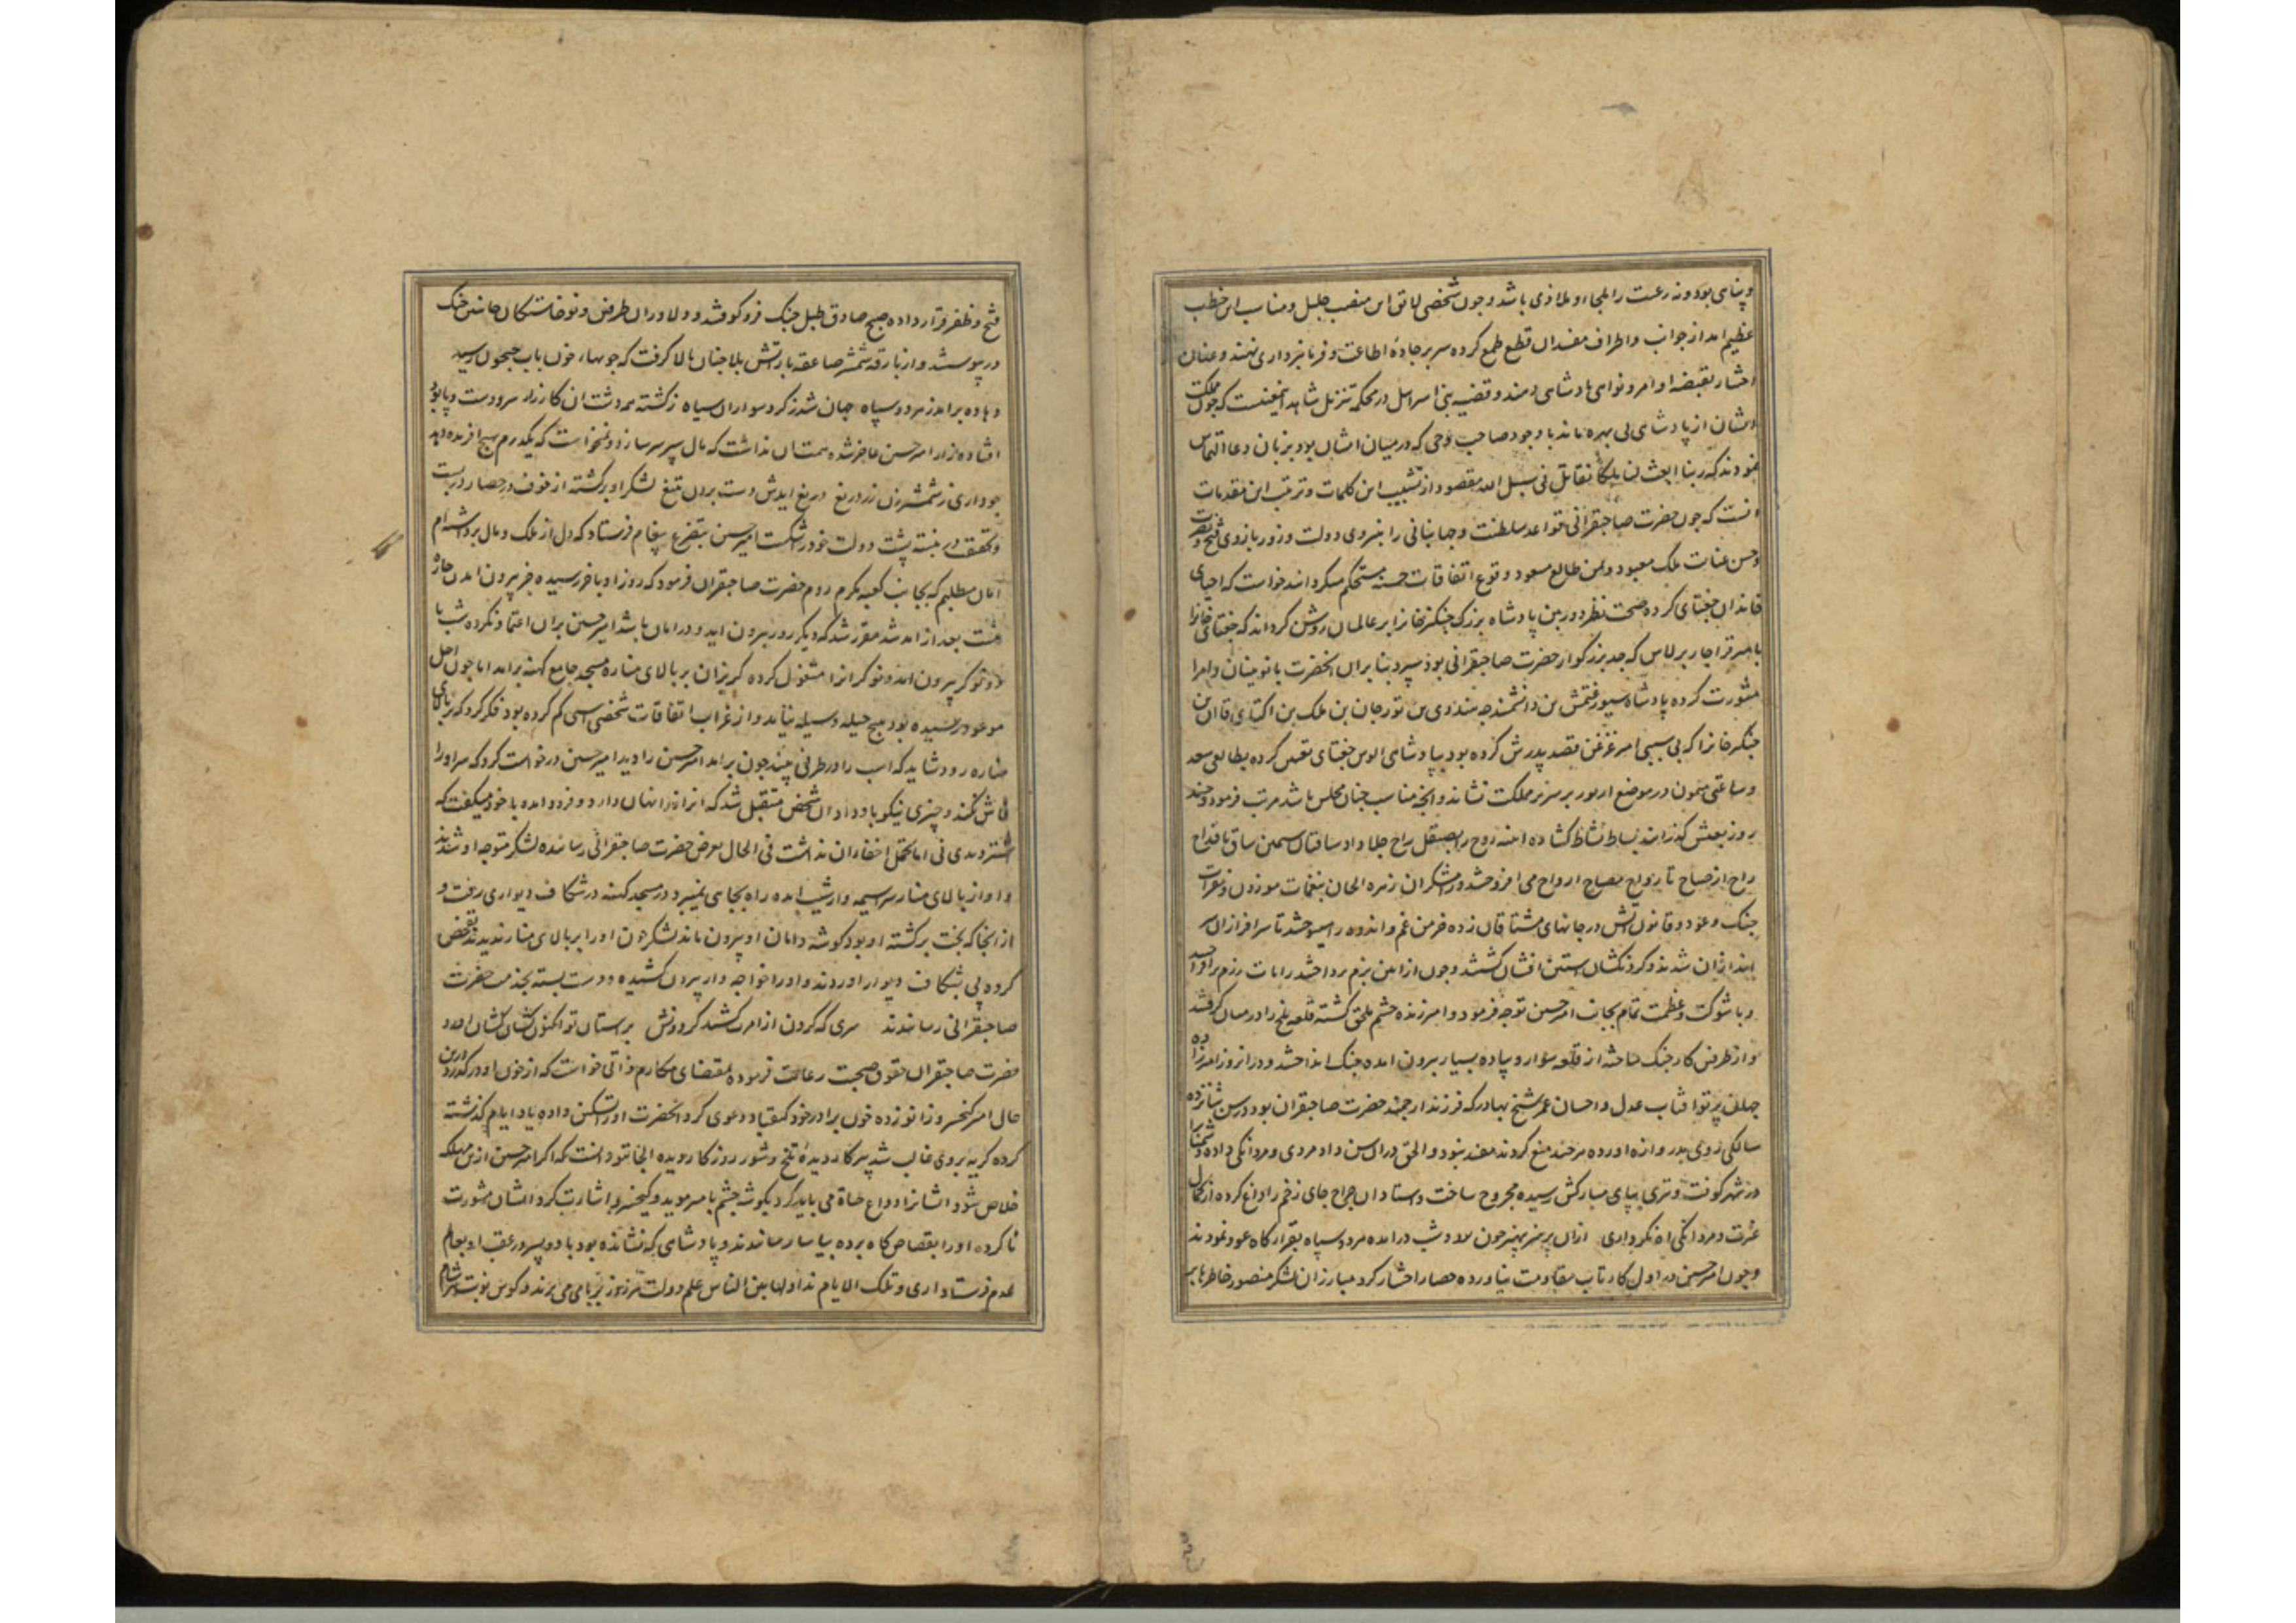 و پناهی بود و نه رعیت را ملجاء و ملاذی باشد و چون شخصی لایق این منصب جلیل و مناسب این خطب
عظیم اید از جوانب و اطراف مفسدان قطع طمع کرده سر بر جادهٔ اطاعت و فرمانبرداری نهند و عنان
اختیار بقبضه اوامر و نواهی پادشاهی دهند و قضیه بنی اسراییل در محکمه تنزیل شاهد اینمعنیست که چون مملکت
ایشان از پادشاهی بی بهره ماند با وجود صاحب وحی که در میان ایشان بود بزبان دعا التماس
نمودند که ربنا ابعث لنا ملکا نقاتل فی سبیل الله مقصود از تشبیب این کلمات و ترتیب این مقدمات
انست که چون حضرت صاحبقرانی قواعد سلطنت و جهانبانی را بنیروی دولت و زور بازوی فتح و نصرت
و حسن عنایت ملک معبود و یمن طالع مسعود و وقوع اتفاقات حسنه مستحکم میکردانید خواست که احیای
خاندان جغتای کرده صحت نظر دوربین پادشاه بزرک چنکزخانرا بر عالمیان روشن کرداند که جغتای خانرا
بامیر قراجار برلاس که جد بزرکوار حضرت صاحبقرانی بود سپرد بنابران انحضرت با نوینان و امرا
مشورت کرده پادشاه سیورغتمش بن دانشمندجه بن ملک بن اکتای قاان بن
چنکزخانرا که بی سببی امیر قزغن قصد پدرش کرده بود بپادشاهی الوس جغتای تعیین کرده بطالعی سعد
و ساعتی میمون در موضع بر سریر مملکت نشاند و انچه مناسب چنان مجلس باشد مرتب فرمود و چند
روز بعیش کذرانید بساط نشاط کشاده اینه روح را بصیقل راح جلا داد ساقیان سیمین ساق باقداح
راح از صباح تا رواح مصباح ارواح می افروختند و زهره الحان بنغمات موزون و نقرات
چنک و عود و قانون اتش در جانهای مشتاقان زده خرمن غم و اندوه را میسوختند تا سرافرازان سر
اندازان شدند و کردنکشان استین افشان کشتند و چون از این بزم برداختند رایات رزم برافراخته
و با شوکت و عظمت تمام بجانب امیر حسین توجه فرمود و امیرزنده حشم ملحق کشته قلعه بلخ را در میان کرفتند
و از طرفین کار جنک ساخته از قلعه سوار و پیاده بسیار بیرون امده جنک انداختند و در انروز امیرزاده
جهان پرتو افتاب عدل و احسان عمر شیخ بهادر که فرزند ارجمند حضرت صاحبقران بود در سن شانزده
سالکی روی بدروازه اورده هرچند منع کردند مفید نبود و الحق دران سن داد مردی و مردانکی داده دشمنانرا
در شهر کوفت و تیری بپای مبارکش رسیده مجروح ساخت و استادان جراح جای زخم را داغ کرده از کمال
غیرت و مردانکی اه نکرد اری ازان پر هنر بهنر چون شب درامد هر دو سپاه بقرارکاه عود نمودند
و چون امیر حسین در اول کار تاب مقاومت نیاورده حصار اختیار کرد مبارزان لشکر منصور خاطرها بر
فتح و ظفر قرار داده صبح صادق طبل جنک فرو کوفتند و دلاوران طرفین و نوخاستکان جانبین جنک
در پیوستند و از بارقه شمشیر صاعقه بار اتش بلا چنان بالا کرفت که جویهاء خون باب جیحون رسید
دهاده برامد ز هر دو سپاه جهان شد ز کرد سواران سیاه ز کشته همه دشت ان کارزار سر و دست و پا بود
افتاده زار امیر حسین عاجز شده همت ان نداشت که مال سپر سر سازد و نمیخواست که یکدرم بهیچ افریده دهد
چو داری ز شمشیرزن زر دریغ دریغ ایدش دست بردن بتیغ لشکر او برکشته از خوف در حصار در بست
و تحقیق در بسته پشت دولت خود در شکست امیر حسین بتضرع پیغام فرستاد که دل از ملک و مال برداشته ام
امان میطلبم که بجانب کعبه مکرم روم حضرت صاحبقران فرمود که روز او باخر رسیده جز بیرون امدن چاره
نیست بعد از امد شد مقرر شد که دیکر روز بیرون اید و در امان باشد امیر حسین بران اعتماد نکرده شب با
دو نوکر بیرون امد و نوکرانرا مشغول کرده کریزان بر بالای مناره مسجد جامع کهنه برامد اما چون اجل
موعود رسیده بود هیچ حیله و وسیله نیاید و از غرایب اتفاقات شخصی اسبی کم کرده بود فکر کرد که ببالای
مناره رود شاید که اسب را در طرفی بیند چون برامد امیر حسین را دید امیر حسین درخواست کرد که سر او را
فاش نکند و چیزی نیکو باو داد ان شخص متقبل شد که انراز را نهان دارد و فرود امده با خود میکفت که
اشتر دیدی نی اما تحمل اخفاء ان نداشت فی الحال بعرض حضرت صاحبقرانی رسانده لشکر متوجه او شدند
و او از بالای منار سراسیمه وار شیب امده راه بجایی نمیبرد در مسجد کهنه در شکاف دیواری رفت و
از انجا که بخت برکشته او بود کوشه دامان او بیرون ماند لشکر چون او را بر بالای منار ندیدند تفحص
کرده پی بشکاف دیوار اوردند و او را خواجه وار بیرون کشیده و دست بسته بخدمت حضرت
صاحبقرانی رسانیدند سری که کردن از امرت کشد کردونش بر استان تو اکنون کشان کشان اورد
حضرت صاحبقران حقوق صحبت رعایت فرموده بمقتضای مکارم ذاتی خواست که از خون او درکذرد درین
حال امیر کیخسرو زانو زده خون برادر خود کیقباد دعوی کرد انحضرت او را تسکین داده یاد ایام کذشته
کرده کریه بر وی غالب شد پیر کار دیدهٔ تلخ و شور روزکار دیده الجایتو دانست که اکر امیر حسین ازین مهلکه
خلاص شود ایشانرا وداع حیاة می باید کرد بکوشه چشم بامیر موید و کیخسرو اشارت کرد ایشان مشورت
ناکرده او را بقصاص کاه برده بیاسا رسانیدند و پادشاهی که نشانده بود با دو پسر در عقب او بعالم
عدم فرستاد اری و تلک الایام نداولها بین الناس علم دولت هر روز بر بامی می برند و کوس نوبت